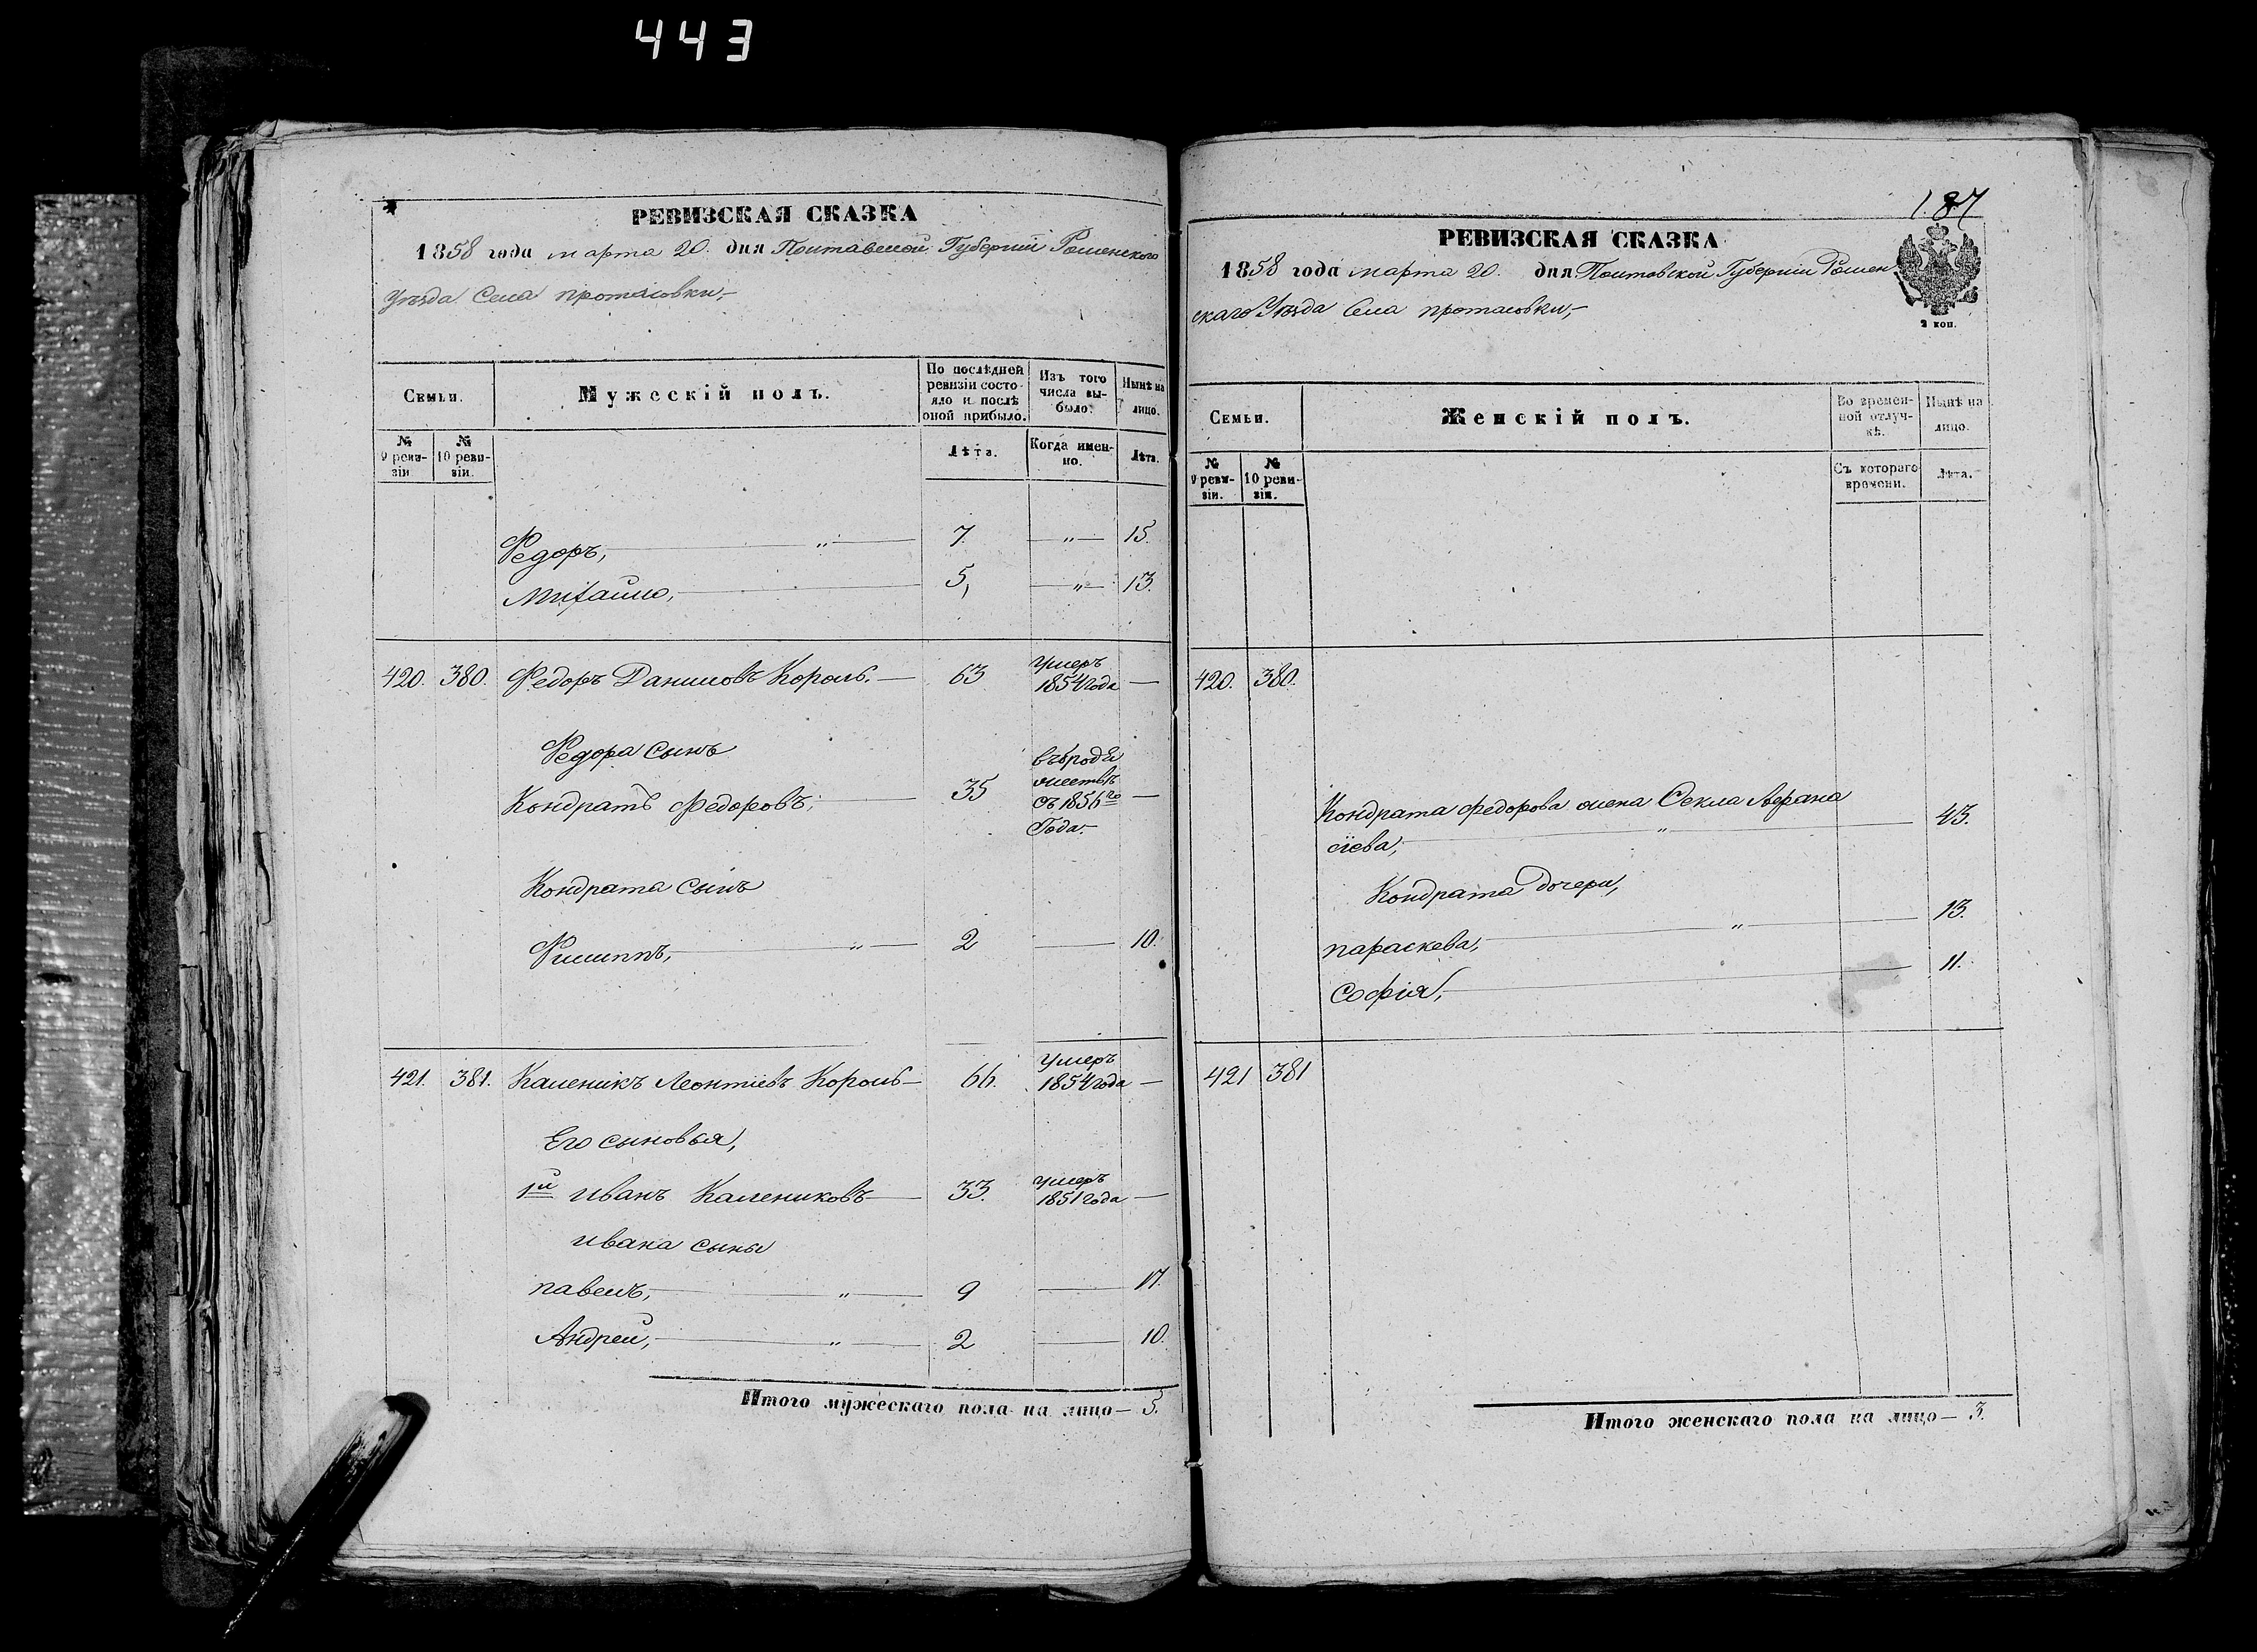 443
РЕВИЗСКАЯ СКАЗКА
1858 года марта 20. дня Полтавской Губернии Роменского
Уѣзда Села протасовки,-
Семьи.
Мужескій полъ.
По послѣдней ревизіи состояло и послѣ оной прибыло.
Изъ того числа выбыло.
Нынѣ на лицо.
№ 9 ревизіи
№ 10 ревизіи.
Лѣта.
Когда именно.
Лѣта.
Федоръ, — „ — 7. — „ — 15.
Михайло, — 5, — „ — 13.
420. 380. Федоръ Даниловъ Король. — 63 Умеръ 1854 года —
Федора сынъ
Кондратъ Федоровъ, — 35 съ 1856го Года. —
Кондрата сынъ
Филиппъ, — „ — 2 — 10.
421. 381. Каленикъ Леонтіевъ Король — 66. Умеръ 1854 года —
Его сыновья,
1й иванъ Калениковъ — 33. умеръ 1851 года —
ивана сыны
павелъ, — „ — 9 — 17.
Андрей, — „ — 2 — 10.
Итого мужескаго пола на лицо — 5.
187
РЕВИЗСКАЯ СКАЗКА
1858 года марта 20. дня Полтавской Губернии Ромен
скаго Уѣзда Села протасовки,-
2 коп.
Семьи.
Женскій полъ.
Во временной отлучкѣ.
Нынѣ на лицо.
№ 9 ревизіи.
№ 10 ревизіи.
Съ котораго времени.
Лѣта.
420. 380.
Кондрата Федорова жена Фекла Афана
сіева, — „ — 43.
Кондрата дочери,
параскева, — „ — 13.
Софія, — 11.
421 381
Итого женскаго пола на лицо — 3.